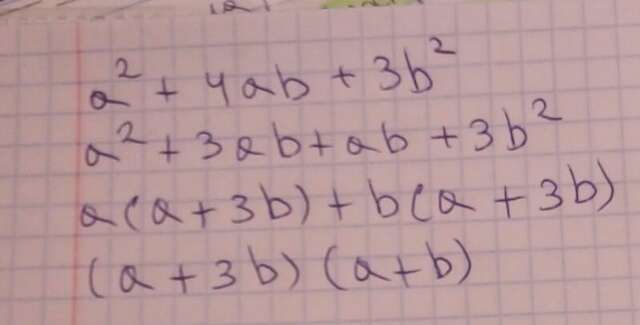 a² + 4ab + 3b²
a² + 3ab + ab + 3b²
a(a + 3b) + b(a + 3b)
(a + 3b) (a + b)